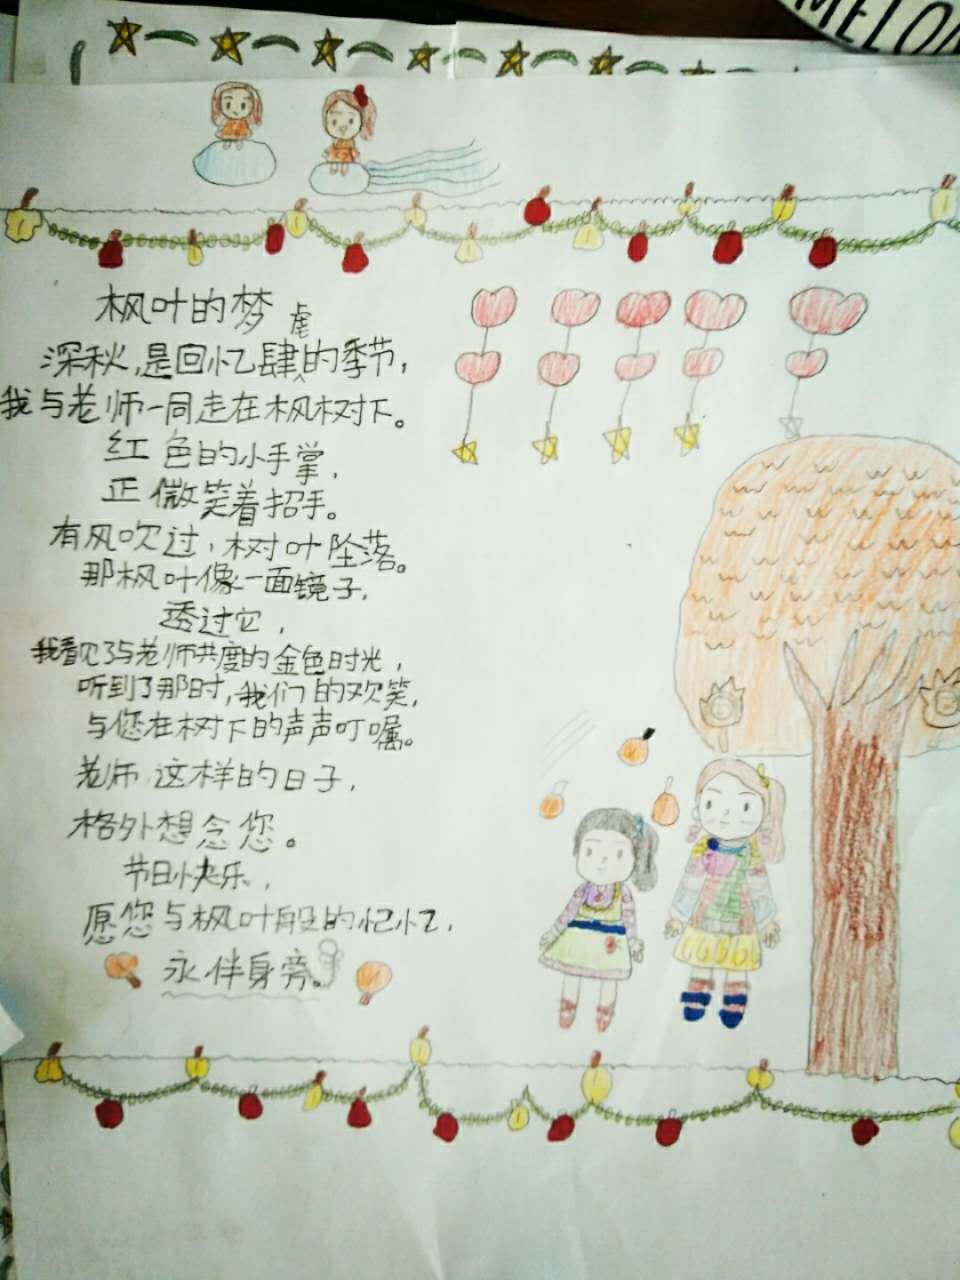 MELO
枫叶的梦
虐
深秋,是回忆肆的季节,
我与老师一同走在枫树下。
红色的小手掌,
正微笑着招手。
有风吹过,树叶坠落。
那枫叶像一面镜子,
透过它,
我看见了与老师共度的金色时光,
听到了那时,我们的欢笑,
与您在树下的声声叮嘱。
老师,这样的日子,
格外想念您。
节日快乐,
愿您与枫叶般的记忆,
永伴身旁。